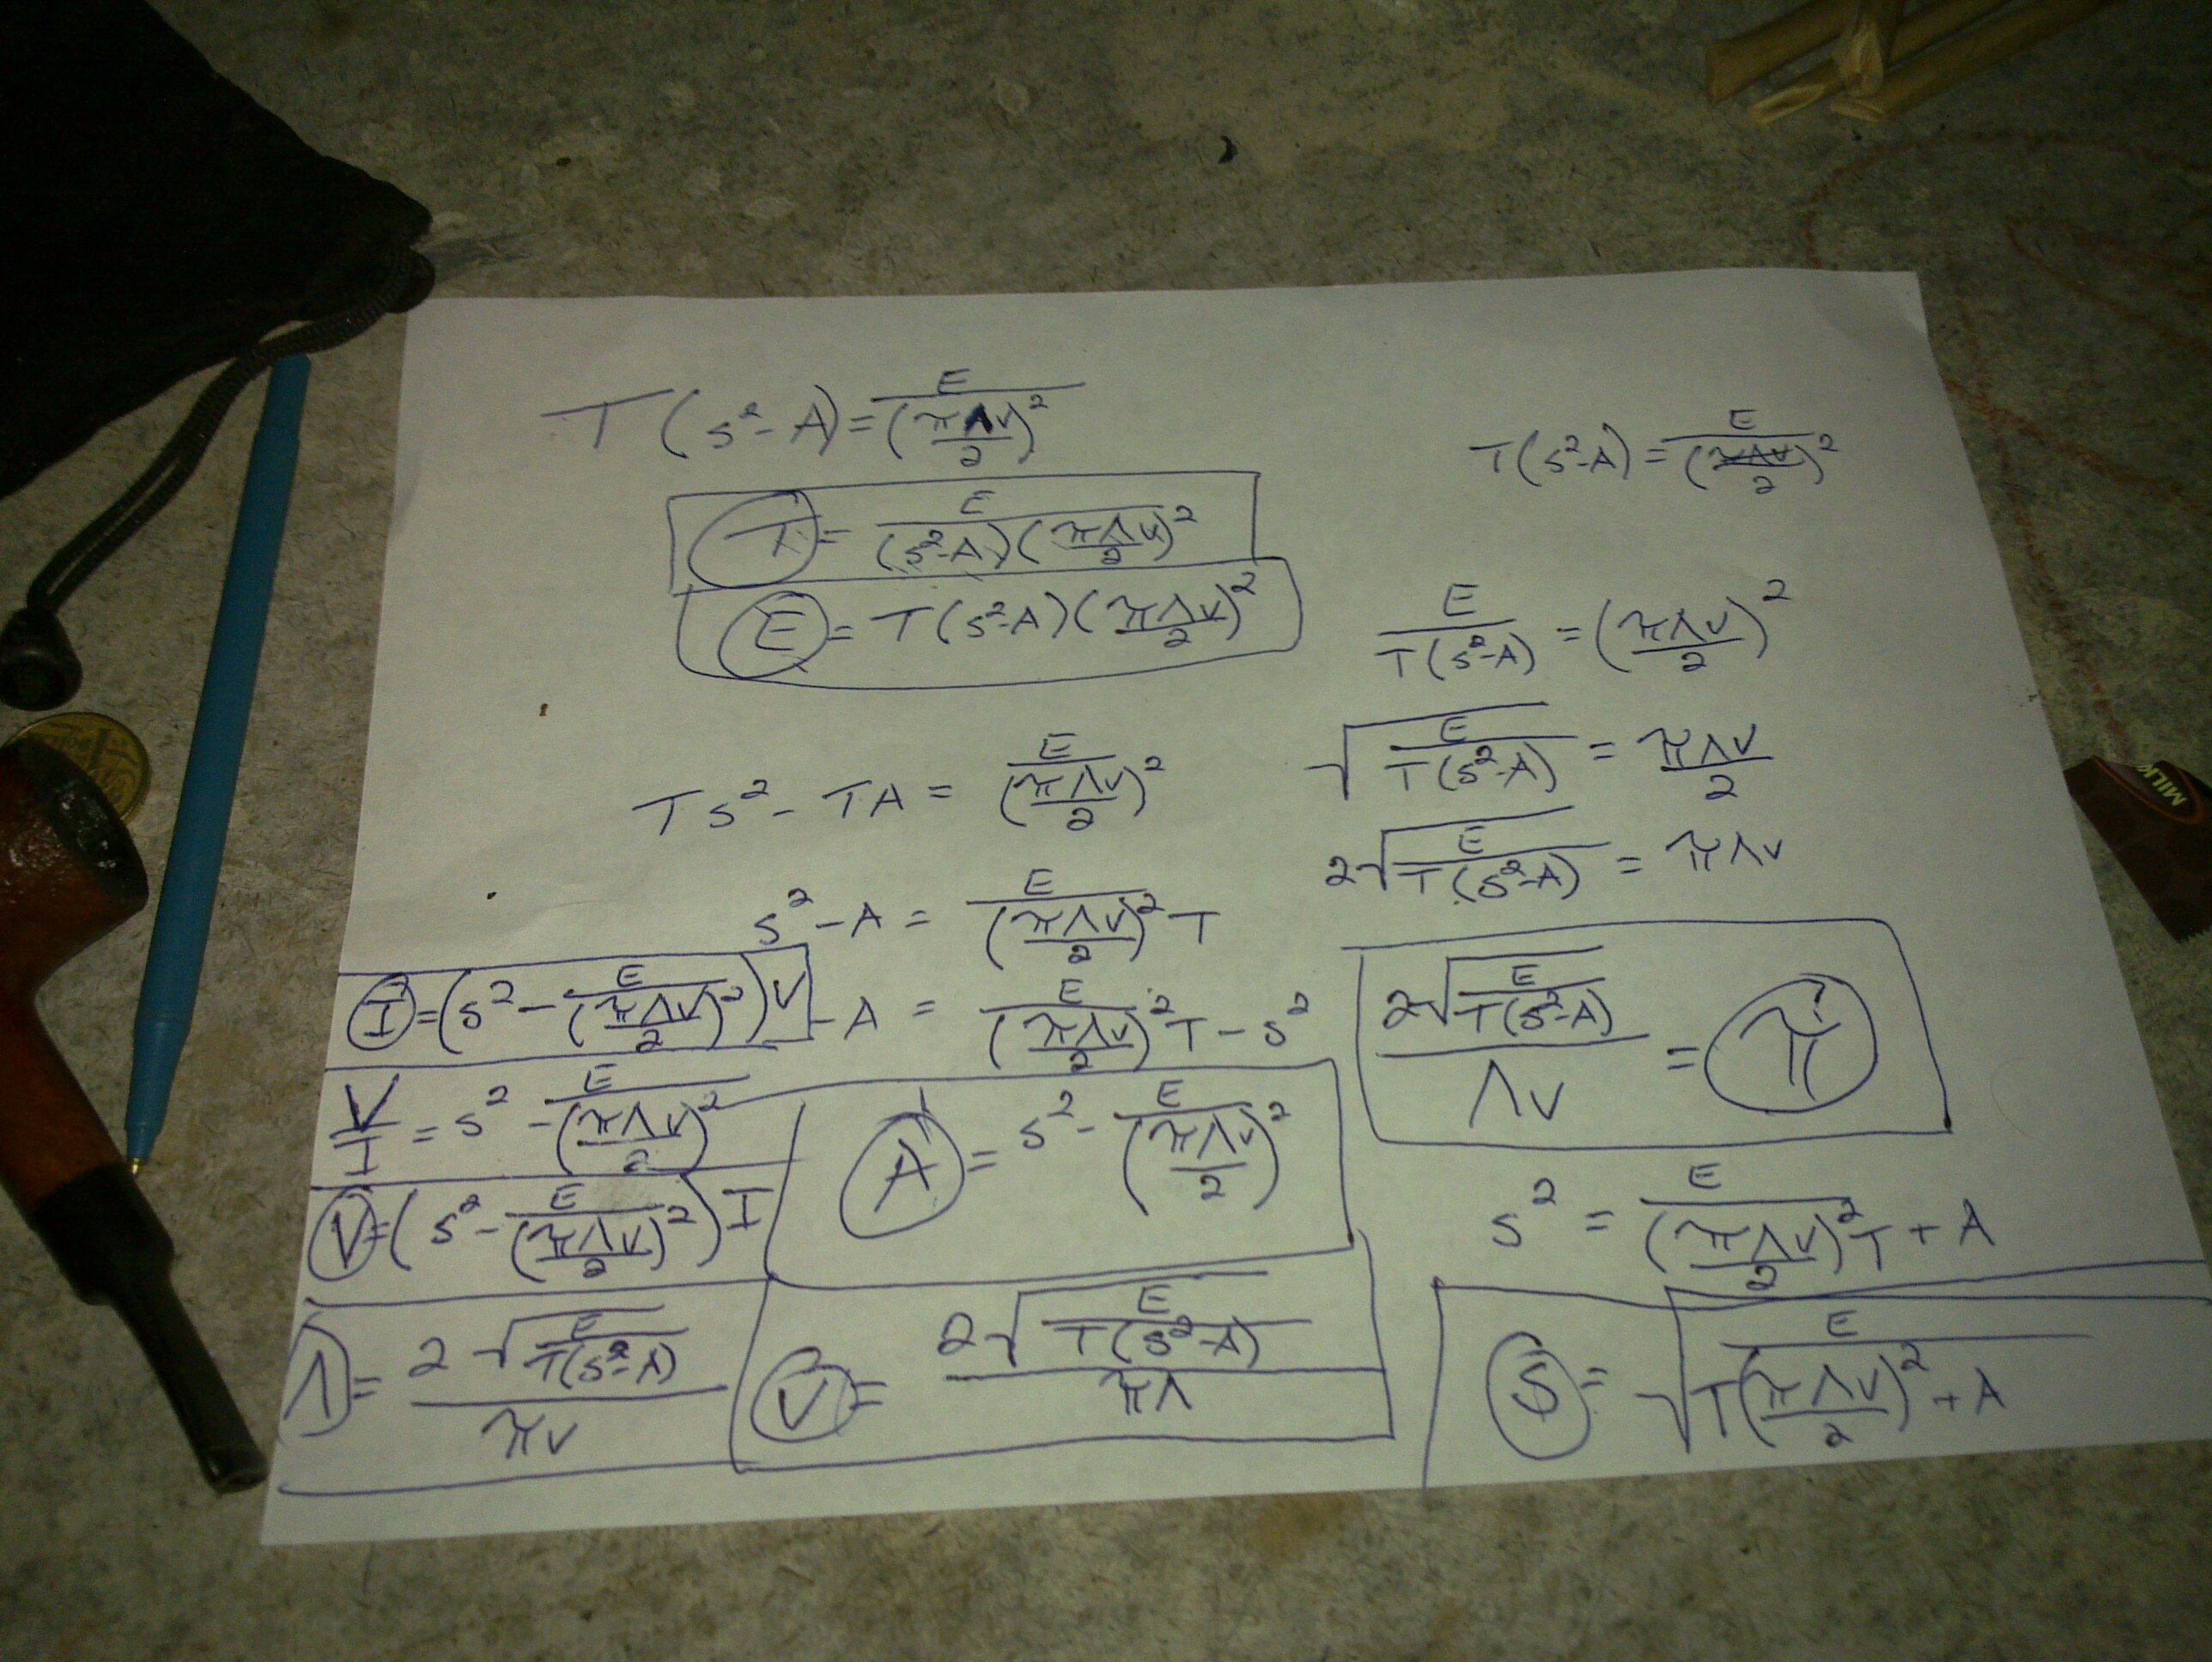 T(s²-A) = E/(πΛV/2)²
T = E/((s²-A)(πΛV/2)²)
E = T(s²-A)(πΛV/2)²
Ts² - TA = E/(πΛV/2)²
s² - A = E/((πΛV/2)²T)
-A = E/((πΛV/2)²T) - s²
A = s² - E/(πΛV/2)²
I = (s² - E/(πΛV/2)²)V
V/I = s² - E/(πΛV/2)²
V = (s² - E/(πΛV/2)²)I
Λ = 2√(E/(T(s²-A)))/(πV)
V = 2√(E/(T(s²-A)))/(πΛ)
T(s²-A) = E/(πΛV/2)²
E/(T(s²-A)) = (πΛV/2)²
√(E/(T(s²-A))) = πΛV/2
2√(E/(T(s²-A))) = πΛV
2√(E/(T(s²-A)))/(ΛV) = π
s² = E/((πΛV/2)²T) + A
S = √(E/(T(πΛV/2)²) + A)
MILK